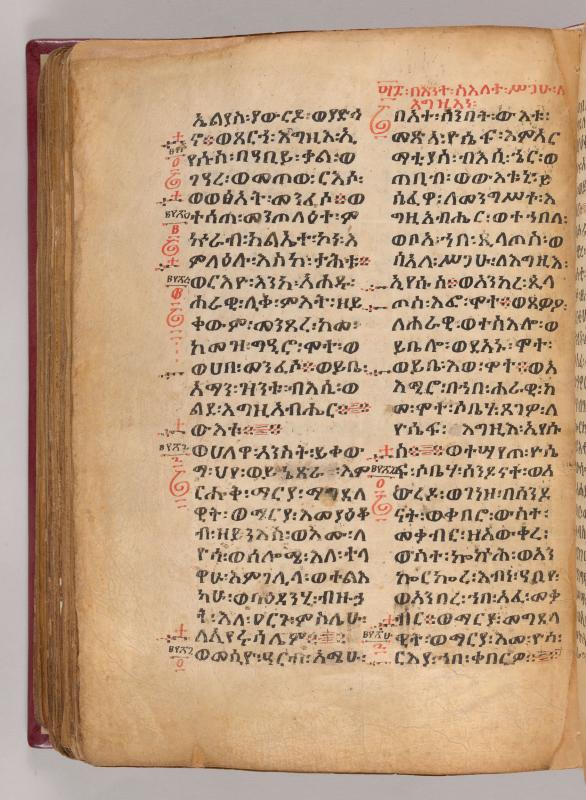 ኤልያስ፡ያውርዶ፡ወያድኅ
ኖ፡ወጸርኀ፡እግዚእ፡ኢ
የሱስ፡በዓቢይ፡ቃል፡ወ
ገዓረ፡ወመጠወ፡ርእሶ፡
ወወፅአት፡መንፈሶ፡ወ
ተሰጠ፡መንጦላዕተ፡ም
ኵራብ፡ክልኤተ፡ኮነ፡እ
ምላዕሉ፡እስከ፡ታሕቱ፡
ወርእዮ፡
ሐራዊ፡ሊቀ፡ምእት፡ዘይ
ቀውም፡መንጸረ፡ከመ፡
ከመዝ፡ግዒሮ፡ሞተ፡ወ
ወሀበ፡መንፈሶ፡ወይቤ፡
አማን፡ዝንቱ፡ብእሲ፡ወ
ልደ፡እግዚአብሔር፡
ውእቱ፡
ወሀለዋ፡አንስት፡ይቀው
ማ፡ህየ፡ወይኔጽራ፡እም
ርሑቅ፡ማርያ፡ማግደላ
ዊት፡ወማርያ፡እመ፡ያዕቆ
ብ፡ዘይንእስ፡ወእሙ፡ለ
ዮሳ፡ወሰሎሜ፡እለ፡ተላ
ዋሁ፡እምገሊላ፡ወተልእ
ካሁ፡ወባዕዳንሂ፡ብዙኃ
ት፡እለ፡ዐርጋ፡ምስሌሁ፡
ለኢየሩሳሌም፡
ወመሲዮ፡ዓርብ፡እሜሁ፡
በእንተ፡ስእለት፡ሥጋሁ፡ለ
እግዚእነ፡
በአተ፡ሰንበት፡ውእቱ፡
መጽአ፡ዮሴፍ፡እምአር
ማቲያስ፡ብእሲ፡ኄር፡ወ
ጠቢብ፡ወውእቱኒ፡ይ
ሴፈዋ፡ለመንግሥተ፡እ
ግዚአብሔር፡ወተኀበለ፡
ወቦአ፡ኀበ፡ጲላጦስ፡ወ
ሰአለ፡ሥጋሁ፡ለእግዚእ፡
ኢየሱስ፡ወአንከረ፡ጲላ
ጦስ፡እፎ፡ሞተ፡ወጸውዖ፡
ለሐራዊ፡ወተስእሎ፡ወ
ይቤሎ፡ወድአኑ፡ሞተ፡
ወይቤ፡እወ፡ሞተ፡ወአ
እሚሮ፡በኀበ፡ሐራዊ፡ከ
መ፡ሞተ፡ሶቤሃ፡ጸገዎ፡ለ
ዮሴፍ፡እግዚእ፡ኢየሱ
ስ፡ወተሣየጠ፡ዮሴ
ፍ፡ሶቤሃ፡ሰንዶናተ፡ወአ
ውረዶ፡ወገነዘ፡በሰንዶ
ናት፡ወቀበሮ፡ውስተ፡
መቃብር፡ዘአውቀረ፡
ውስተ፡ኰኵሕ፡ወአን
ኰርኰረ፡እብነ፡ዓቢየ፡
ወአንበረ፡ኀበ፡አፈ፡መቃ
ብር፡ወማርያ፡መግደላ
ዊት፡ወማርያ፡እመ፡ዮሳ፡
ርእያ፡ኀበ፡ቀበርዎ፡